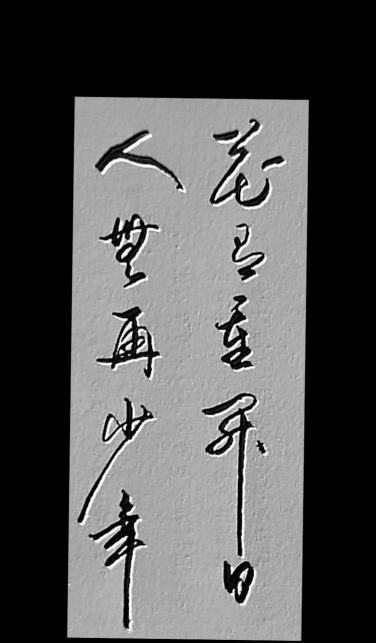 花有重开日
人無再少年